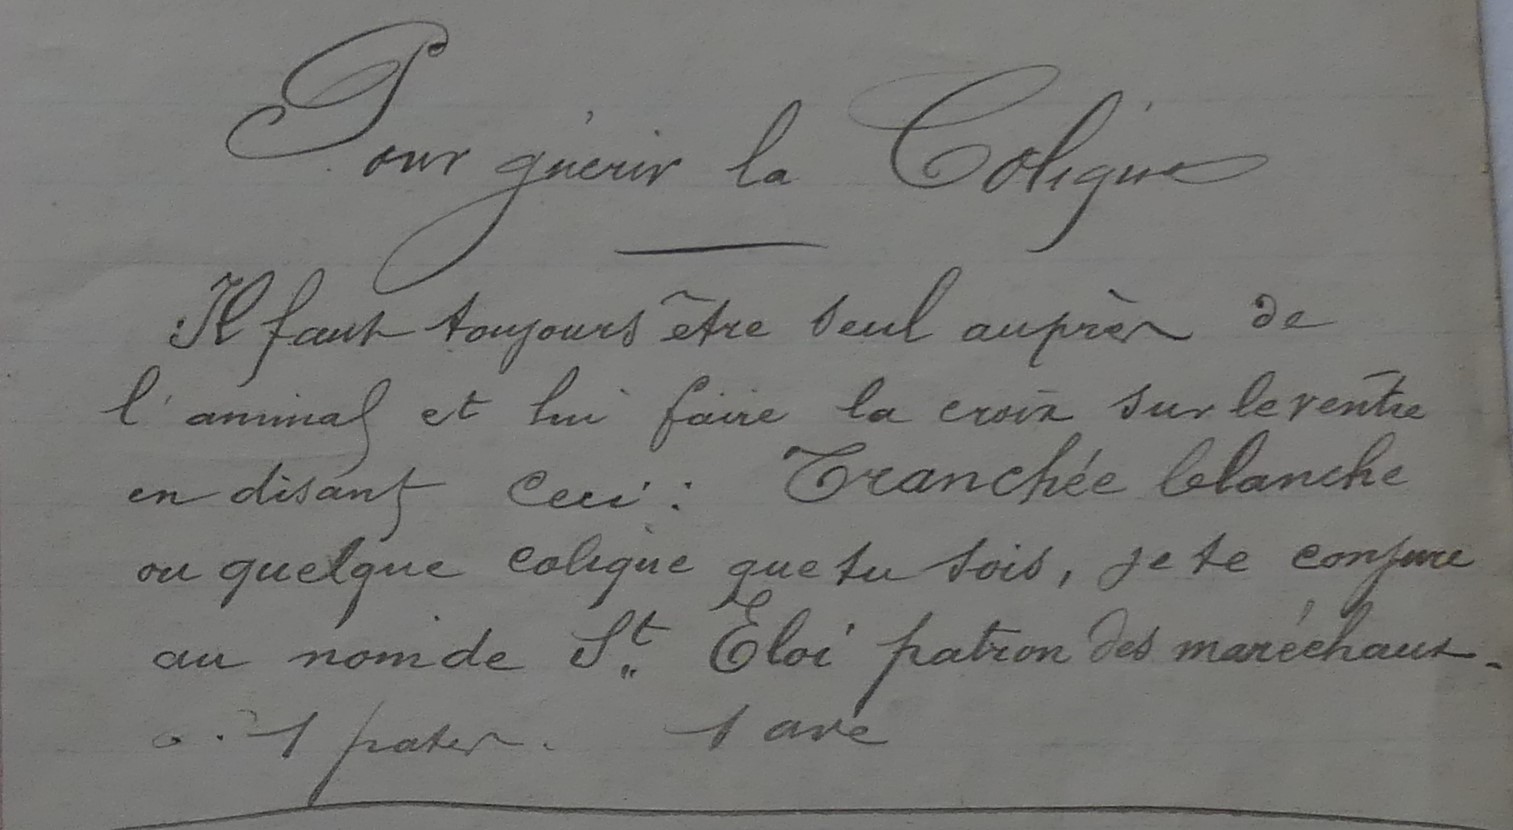 Pour guérir la Colique
Il faut toujours être seul auprès de
l'animal et lui faire la croix sur le ventre
en disant Ceci : Tranchée blanche
ou quelque colique que tu sois, je te conjure
au nom de St. Eloi patron des maréchaux.
1 pater. 1 ave